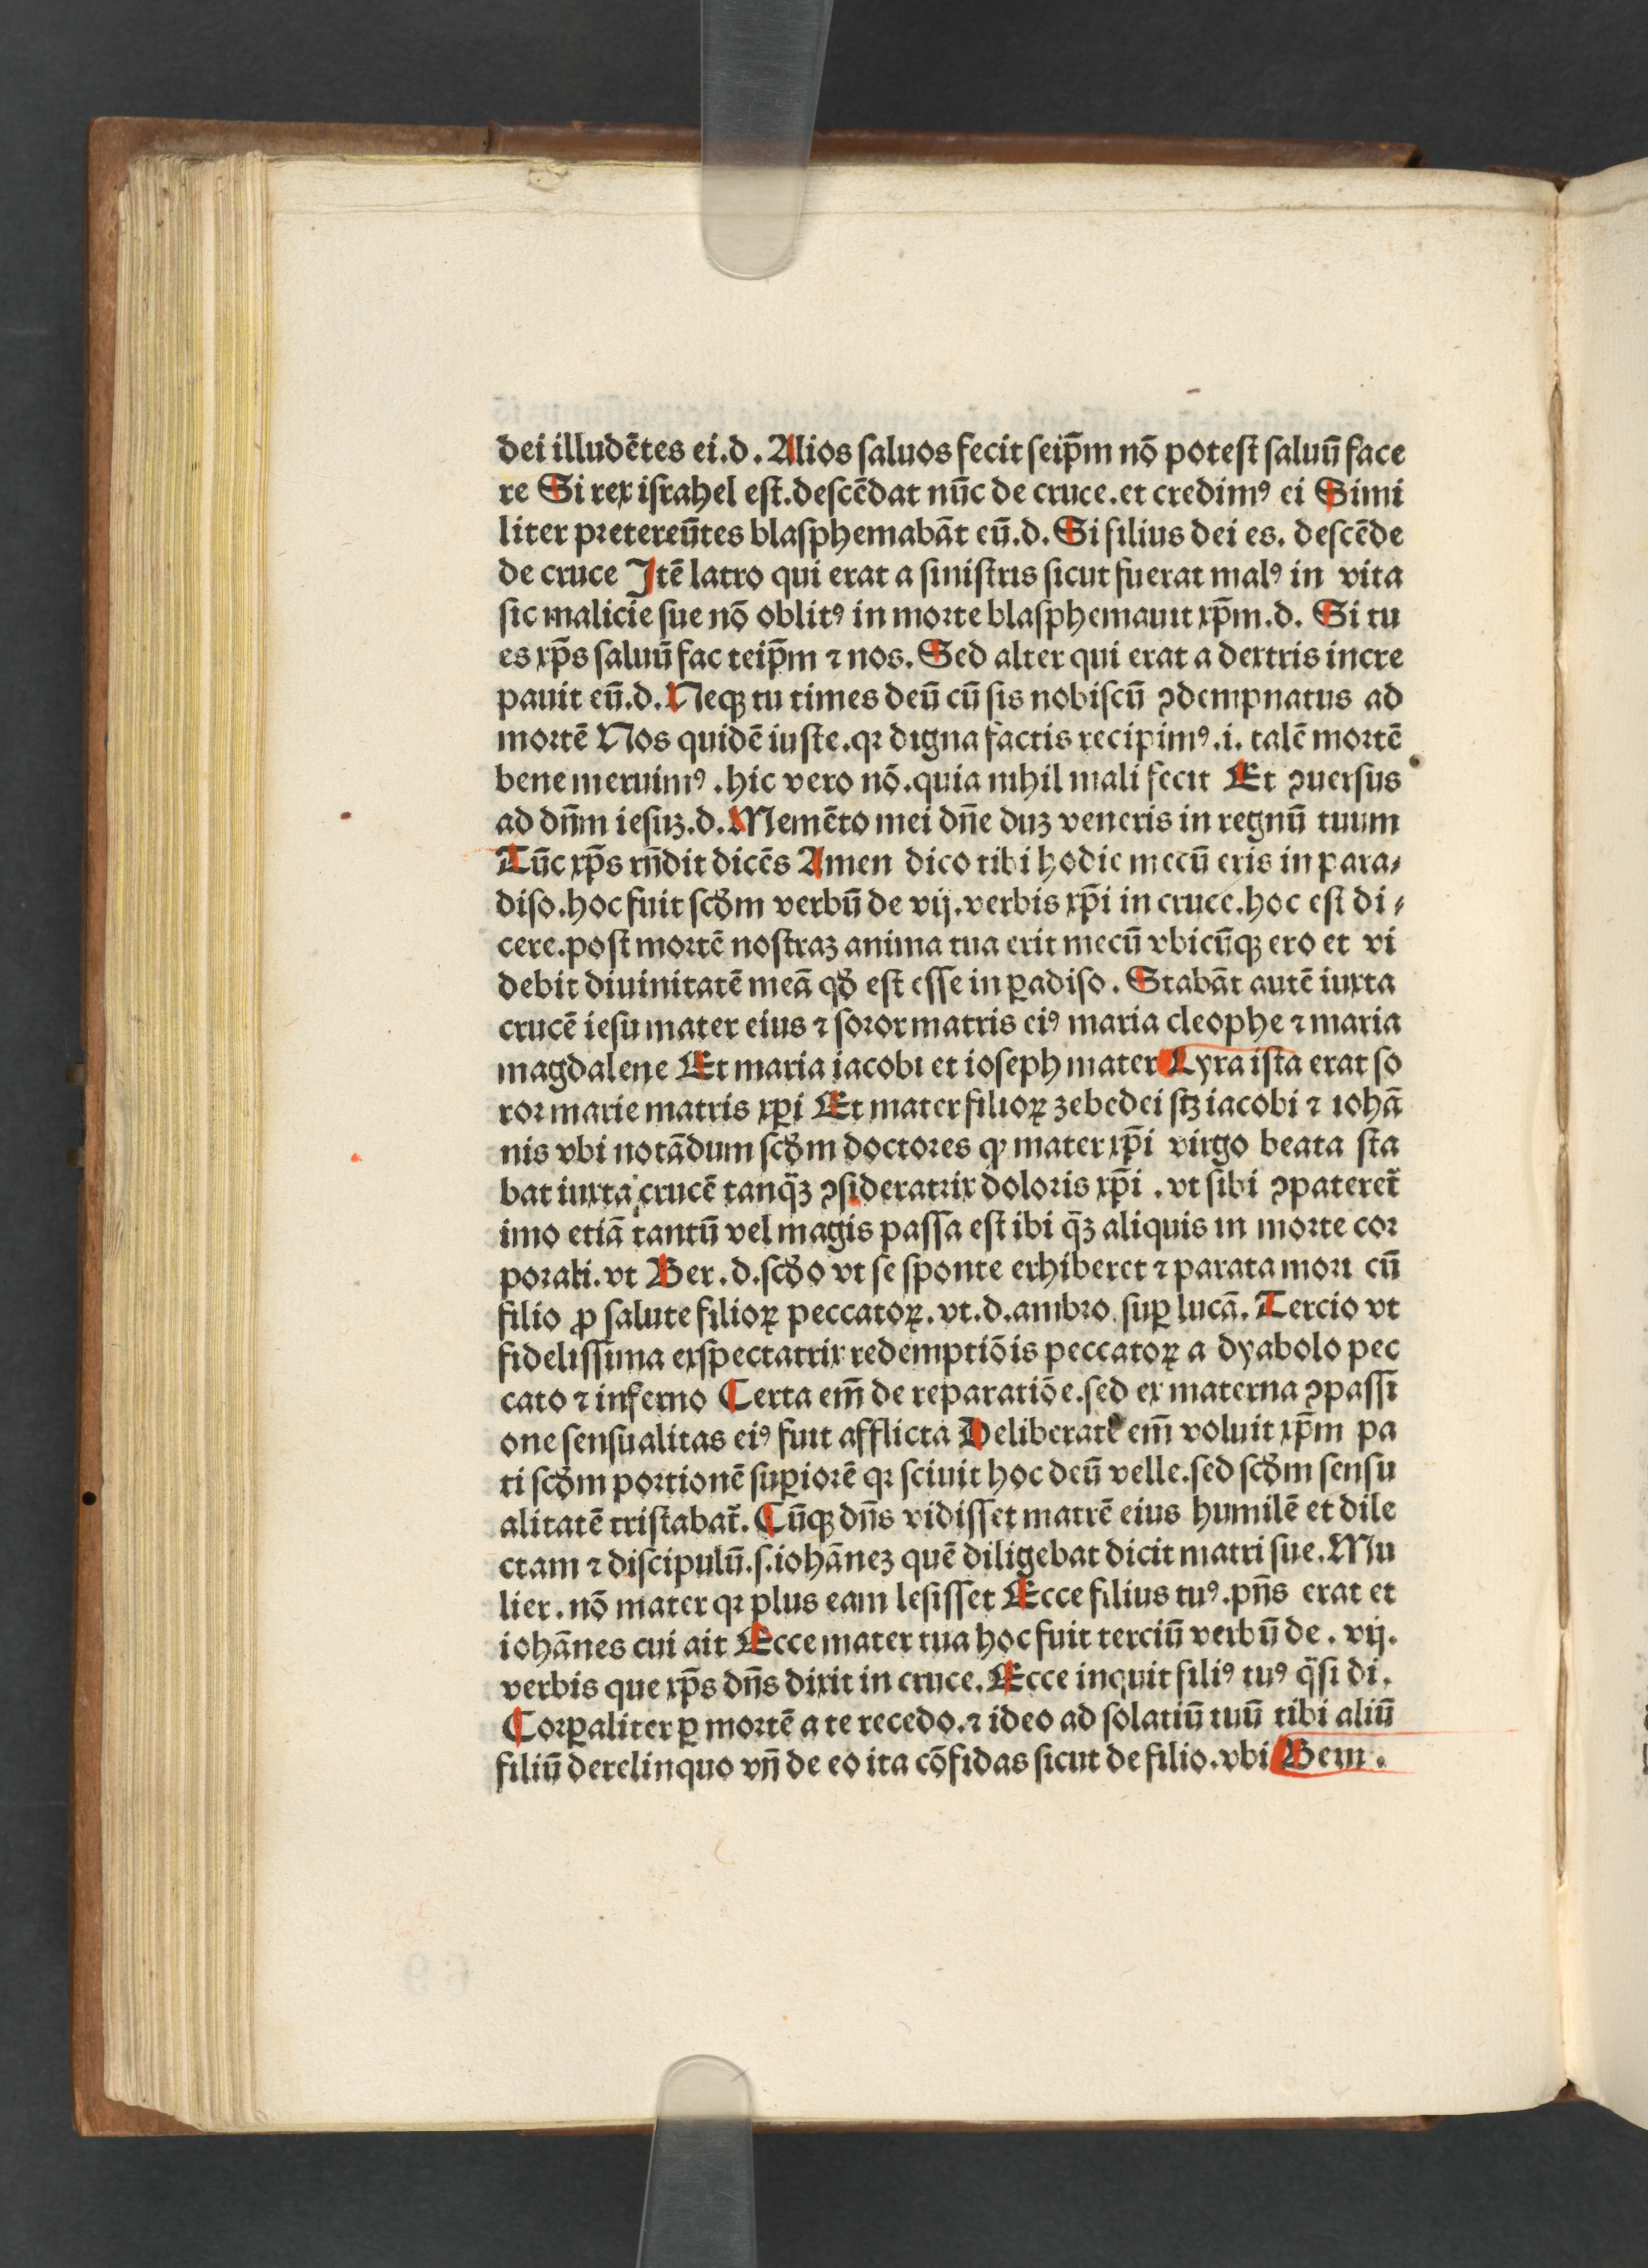 dei illudētes ei.d. Alios ſaluos fecit ſeip̄m nō poteſt ſaluū face
re Si rex iſrahel eſt.deſcēdat nūc de cruce.et credimꝰ ei Simi
liter pretereūtes blaſphemabāt eū.d. Si filius dei es. deſcēde
de cruce Itē latro qui erat a ſiniſtris ſicut fuerat malꝰ in vita
ſic malicie ſue nō oblitꝰ in morte blaſphemauit xp̄m.d. Si tu
es xp̄s ſaluū fac teip̄m ⁊ nos. Sed alter qui erat a dextris incre
pauit eū.d. Neqꝫ tu times deū cū ſis nobiſcū ꝯdempnatus ad
mortē Nos quidē iuſte.qꝛ digna factis recipimꝰ.i. talē mortē
bene meruimꝰ .hic vero nō.quia nihil mali fecit Et ꝯuerſus
ad dn̄m ieſuꝫ.d. Memēto mei dn̄e duꝫ veneris in regnū tuum
Tūc xp̄s rn̄dit dicēs Amen dico tibi hodie mecū eris in para⸗
diſo.hoc fuit ſcd̄m verbū de vij.verbis xp̄i in cruce.hoc eſt di⸗
cere.poſt mortē noſtraꝫ anima tua erit mecū vbicūqꝫ ero et vi
debit diuinitatē meā qd̄ eſt eſſe in ꝑadiſo. Stabāt autē iuxta
crucē ieſu mater eius ⁊ ſoror matris eiꝰ maria cleophe ⁊ maria
magdalene Et maria iacobi et ioſeph mater Lyra iſta erat ſo
ror marie matris xp̄i Et mater filioꝝ zebedei ſꝫ iacobi ⁊ iohā
nis vbi notādum ſcd̄m doctores ꝙ mater xp̄i virgo beata ſta
bat iuxta crucē tanq̄ꝫ ꝯſideratrix doloris xp̄i . vt ſibi ꝯpateret̄
imo etiā tantū vel magis paſſa eſt ibi q̄ꝫ aliquis in morte cor
porali. vt Ber. d.ſcd̄o vt ſe ſponte exhiberet ⁊ parata mori cū
filio ꝓ ſalute filioꝝ peccatoꝝ. vt. d. ambro. ſuꝑ lucā. Tercio vt
fideliſſima exſpectatrix redemptiōis peccatoꝝ a dyabolo pec
cato ⁊ inferno Certa em̄ de reparatiōe.ſed ex materna ꝯpaſſi
one ſenſualitas eiꝰ fuit afflicta Deliberate em̄ voluit xp̄m pa
ti ſcd̄m portionē ſuꝑiorē qꝛ ſciuit hoc deū velle.ſed ſcd̄m ſenſu
alitatē triſtabat̄. Cūqꝫ dn̄s vidiſſet matrē eius humilē et dile
ctam ⁊ diſcipulū.ſ.iohāneꝫ quē diligebat dicit matri ſue. Mu
lier. nō mater qꝛ plus eam leſiſſet Ecce filius tuꝰ.pn̄s erat et
iohānes cui ait Ecce mater tua hoc fuit terciū verbū de . vij.
verbis que xp̄s dn̄s dixit in cruce. Ecce inquit filiꝰ tuꝰ q̄ſi di.
Corꝑaliter ꝑ mortē a te recedo.⁊ ideo ad ſolatiū tuū tibi aliū
filiū derelinquo vn̄ de eo ita cōfidas ſicut de filio.vbi Bern.